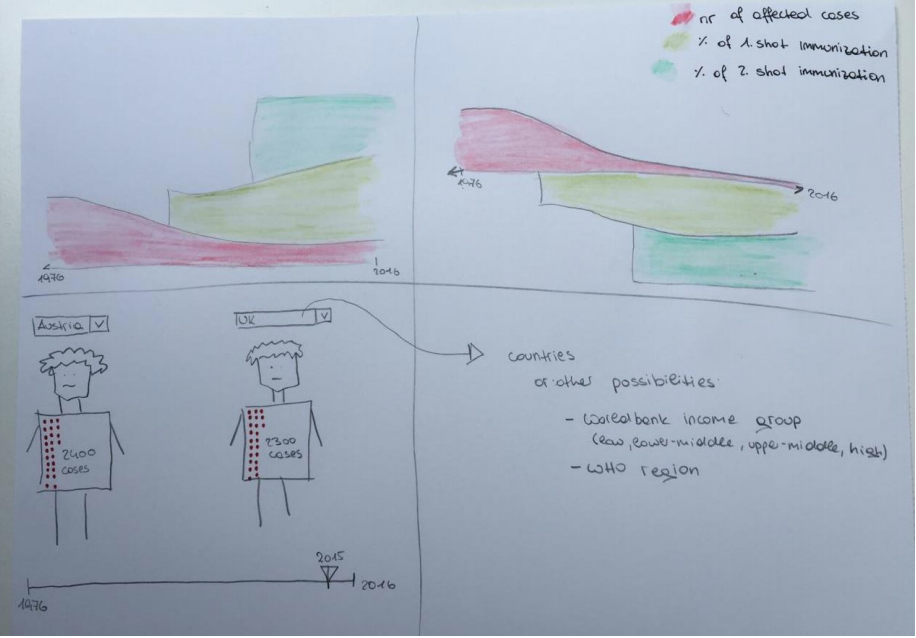 nr of affected cases
% of 1. shot immunization
% of 2. shot immunization
1976
2016
1976
2016
Austria
UK
2400
cases
2300
cases
2015
1976
2016
countries
or other possibilities:
- Worldbank income group
(low, lower-middle, upper-middle, high)
- WHO region